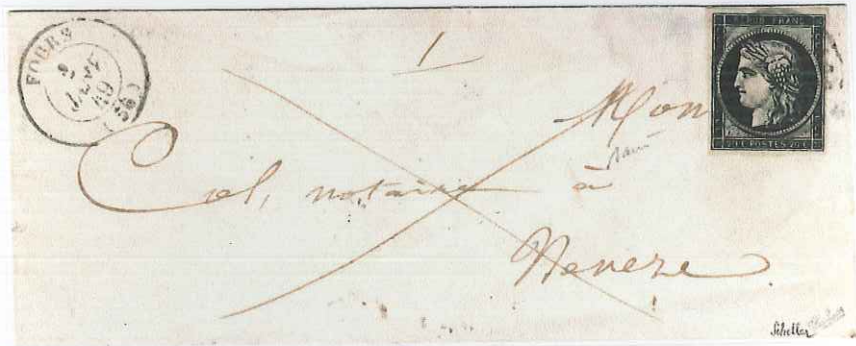 FOURS
6
JANV
49
(56)
1
REPUB. FRANC.
20 C POSTES 20 C
Mon
Ciel, notaire à
Nevers
Scheller